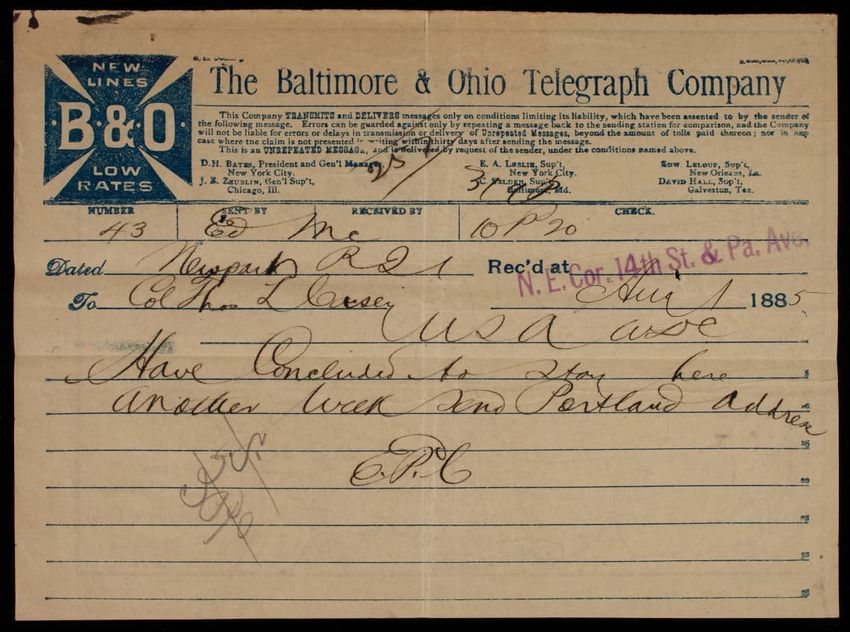 NEW LINES
B·&·O
LOW RATES
The Baltimore & Ohio Telegraph Company
This Company TRANSMITS and DELIVERS messages only on conditions limiting its liability, which have been assented to by the sender of
the following message. Errors can be guarded against only by repeating a message back to the sending station for comparison, and the Company
will not be liable for errors or delays in transmission or delivery of Unrepeated Messages, beyond the amount of tolls paid thereon; nor in any
case where the claim is not presented in writing within thirty days after sending the message.
This is an UNREPEATED MESSAGE, and is delivered by request of the sender, under the conditions named above.
D. H. BATES, President and Gen'l Manager, New York City.
J. E. ZEUBLIN, Gen'l Sup't, Chicago, Ill.
E. A. LESLIE, Sup't, New York City.
C. SELDEN, Sup't, Baltimore, Md.
EDW. LELOUP, Sup't, New Orleans, La.
DAVID HALL, Sup't, Galveston, Tex.
NUMBER SENT BY RECEIVED BY CHECK.
43 Ed Mc 10 P 20
Dated Newport R I Rec'd at
N. E. Cor. 14th St. & Pa. Ave.
To Col Thos L Casey Aug 1 1885
U S A
Have Concluded to stay here
another week send Portland address
E.P.C